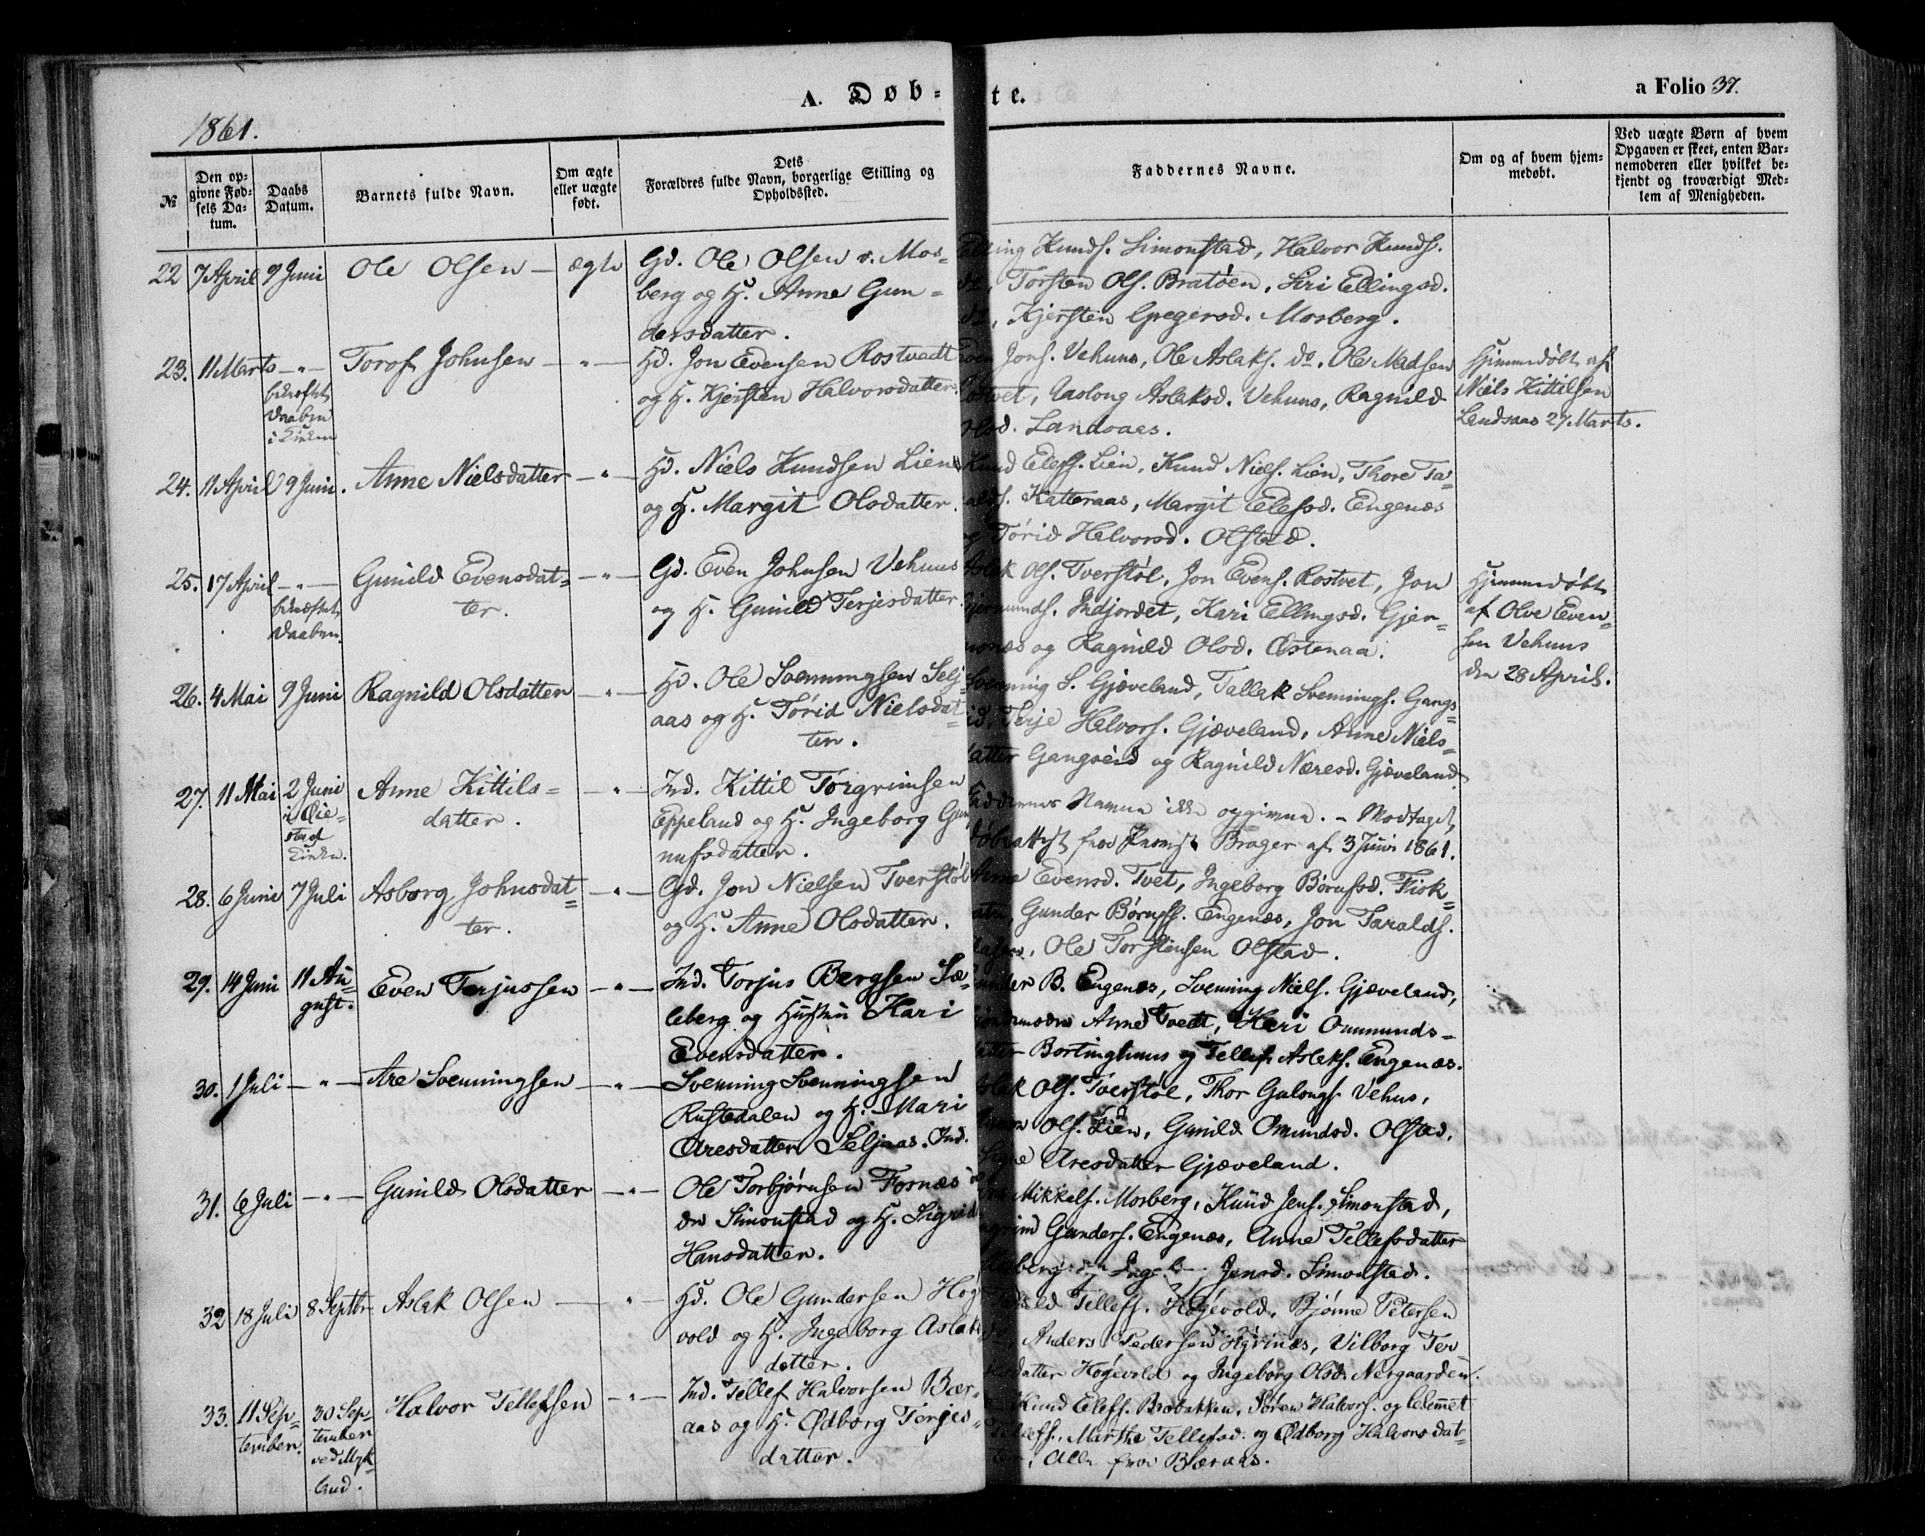 A. Døb-
te.
a Folio 37.
1861.
№
Den op-
givne Fød-
sels Da-
tum.
Daabs
Datum.
Barnets fulde Navn.
Om ægte
eller uægte
født.
Dets
Forældres fulde Navn, borgerlige Stilling og
Opholdssted.
Faddernes Navne.
Om og af hvem hjem-
medøbt.
Ved uægte Børn af hvem
Opgaven er skeet, enten Bar-
nemoderen eller hvilket be-
kjendt og troværdigt Med-
lem af Menigheden.
22 7 April 9 Juni Ole Olsen — ægte Gd. Ole Olsen v. Mos-
berg og H. Anne Gun-
dersdatter.
Knuds. Simonstad, Halvor Knuds.
Torsten Ols. Bratöen, Siri Ellingsd.
Kjersten Gregersd. Mosberg.
23. 11 Marts —"— Torof Johnsen —"— Hd. Jon Evensen Rostvedt
bekræftet
Daaben
i Kirken
og H. Kjersten Halvorsdatter.
Jons. Vehuus, Ole Aslaks. do. Ole Madsen
Aaslong Aslaksd. Vehuus, Ragnild
Landsaas.
Hjemmedøbt af
Niels Kittilsen
Landsaas 27 Marts.
24. 11 April 9 Juni. Anne Nielsdatter —"— Hd. Niels Knudsen Lien
og H. Margit Olsdatter.
Knud Elefs. Lien, Knud Niels. Lien, Thore Ta-
Katteraas, Margit Elefsd. Engenæs
Törid Halvorsd. Olstad.
25. 17 April —"— Gunild Evensdat-
ter. —"— Gd. Even Johnsen Vehuus
bekræftet
Daaben.
og H. Gunild Terjesdatter.
Aslak Ols. Tverstöl, Jon Evens. Rostvet, Jon
Indjordet, Kari Ellingsd. Gjer-
og Ragnild Olsd. Östenaa.
Hjemmedöbt
af Olve Even-
sen Vehuus
den 28 April.
26. 4 Mai 9 Juni Ragnild Olsdatter —"— Hd. Ole Svenningsen Selj-
aas og H. Törid Nielsdat-
ter.
Svenning S. Gjæveland, Tallak Svennings. Gangs-
eid, Terje Halvors. Gjæveland, Anne Niels-
datter Gangseid og Ragnild Næresd. Gjæveland.
27. 11 Mai 2 Juni
i Öie-
stad
Kirke.
Anne Kittils-
datter. —"— Ind. Kittil Torgrimsen
Eppeland og H. Ingeborg Gun-
nufsdatter.
Faddernes Navne ikke opgivne. — Modtaget
Döbsattest fra Brager af 3 Juni 1861.
28. 6 Juni 7 Juli Asborg Johnsdat-
ter. —"— Gd. Jon Nielsen Tverstöl
og H. Anne Olsdatter.
Evensd. Tvet, Ingeborg Börufsd. Fisk-
Gunder Börufs. Engenæs, Jon Taralds.
Ole Torstensen Olstad.
29. 14 Juni 11 Au-
gust. Even Terjussen —"— Ind. Torjus Bergsen Sæ-
leberg og Hustru Kari
Evensdatter.
B. Engenæs, Svenning Niels. Gjæveland,
Anne Tvedt, Kari Ommunds-
datter Bortinghuus og Tellef Aslaks. Engenæs.
30. 1 Juli —"— Are Svenningsen —"— Svenning Svenningsen
Rustedalen og H. Mari
Aresdatter Seljaas. Ind.
Aslak Ols. Tverstöl, Thor Gulongs. Vehus,
Ols. Lien, Gunild Omundsd. Olstad,
Aresdatter Gjæveland.
31. 6 Juli —"— Gunild Olsdatter —"— Ole Torbjörnsen Fornæs
Simonstad og H. Sigrid
Hansdatter.
Mikkels. Mosberg, Knud Jens. Simonstad,
Gunders. Engenæs, Anne Tellefsdatter
Jensd. Simonstad.
32 18 Juli 8 Septbr Aslak Olsen —"— Hd. Ole Gundersen Hög-
vold og H. Ingeborg Aslaks-
datter.
Tellefs. Högevold, Bjönne Petersen
Anders Pedersen Hyrinæs, Vilborg Ter-
jesdatter Högevold og Ingeborg Olsd. Nergaarden.
33. 11 Sep-
tember. 30 Sep-
tember
ved Myk-
land.
Halvor Tellefsen —"— Ind. Tellef Halvorsen Bær-
aas og H. Ödborg Terjes-
datter.
Knud Elefs. Brobakken, Sören Halvors. og Clemmet
Tellefs. Marthe Tellefsd. og Ödborg Halvorsdat-
ter, Alle fra Bæraas.